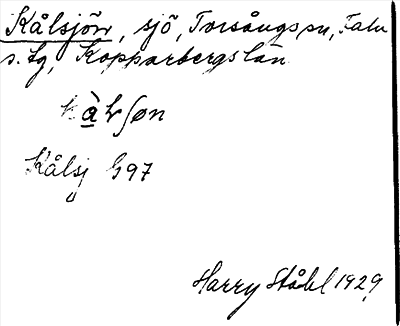 Kålsjön, sjö, Torsångs sn, Falu
s. tg, Kopparbergs län
kàlʃøn
Kålsj G97
Harry Ståhl 1929